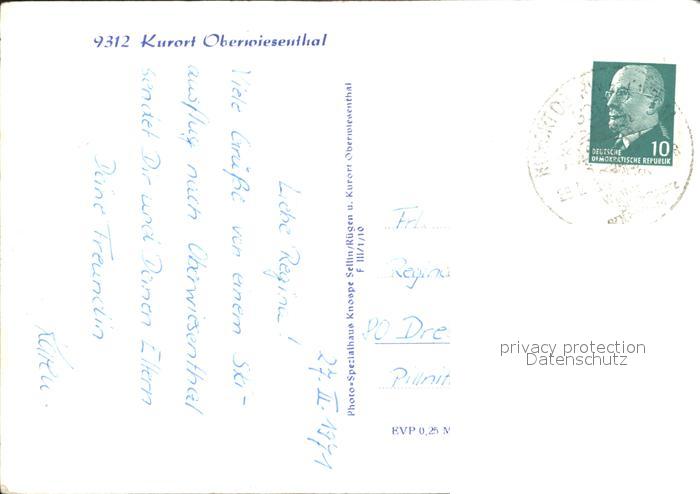 9312 Kurort Oberwiesenthal
27. II. 1971
Liebe Regina!
Viele Grüße von einem Ski-
ausflug nach Oberwiesenthal
sendet Dir und Deinen Eltern
Deine Freundin
Photo-Spezialhaus Knospe Sellin/Rügen u. Kurort Oberwiesenthal
F III/1/10
Frl.
Regina
80 Dre
Pillnit
EVP 0,25 M
10
DEUTSCHE
DEMOKRATISCHE REPUBLIK
privacy protection
Datenschutz